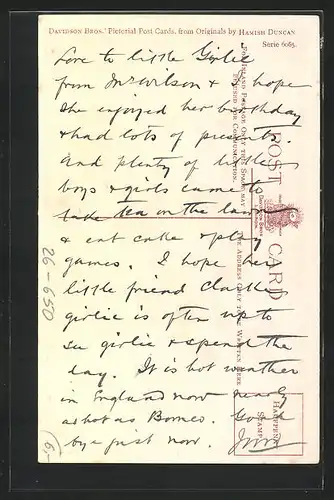 DAVIDSON BROS.' Pictorial Post Cards, from Originals by HAMISH DUNCAN
Serie 6085.
Love to little Girlie
from Mr Wilson & I hope
she enjoyed her birthday
& had lots of presents.
And plenty of little
boys & girls came to
take tea on the lawn
& eat cake & play
games. I hope her
little friend
girlie is often up to
see girlie & spend the
day. It is hot weather
in England now nearly
as hot as Borneo. Good
bye just now.
POST CARD
FOR INLAND POSTAGE ONLY THIS SPACE MAY
BE USED FOR COMMUNICATION.
THE ADDRESS ONLY TO BE WRITTEN HERE
HALFPENNY
STAMP
26-650